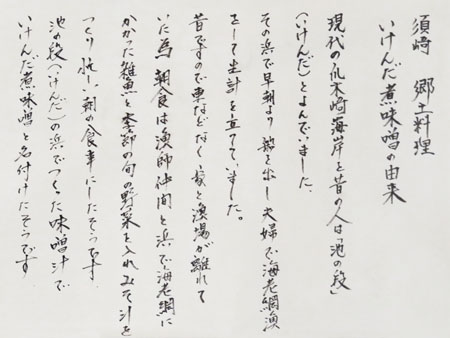 須崎 郷土料理
いけんだ煮味噌の由来
現代の爪木崎海岸を昔の人は「池の段」
(いけんだ)とよんでいました。
その浜で早朝より 船を出し夫婦で海老網漁
をして生計を立てていました。
昔ですので車などなく、家と漁場が離れて
いた為 朝食は漁師仲間と浜で海老網に
かかった雑魚と季節の旬の野菜を入れみそ汁を
つくり 朝の食事にしたそうです
池の段(いけんだ)の浜でつくった味噌汁で
いけんだ煮味噌と名付けたそうです